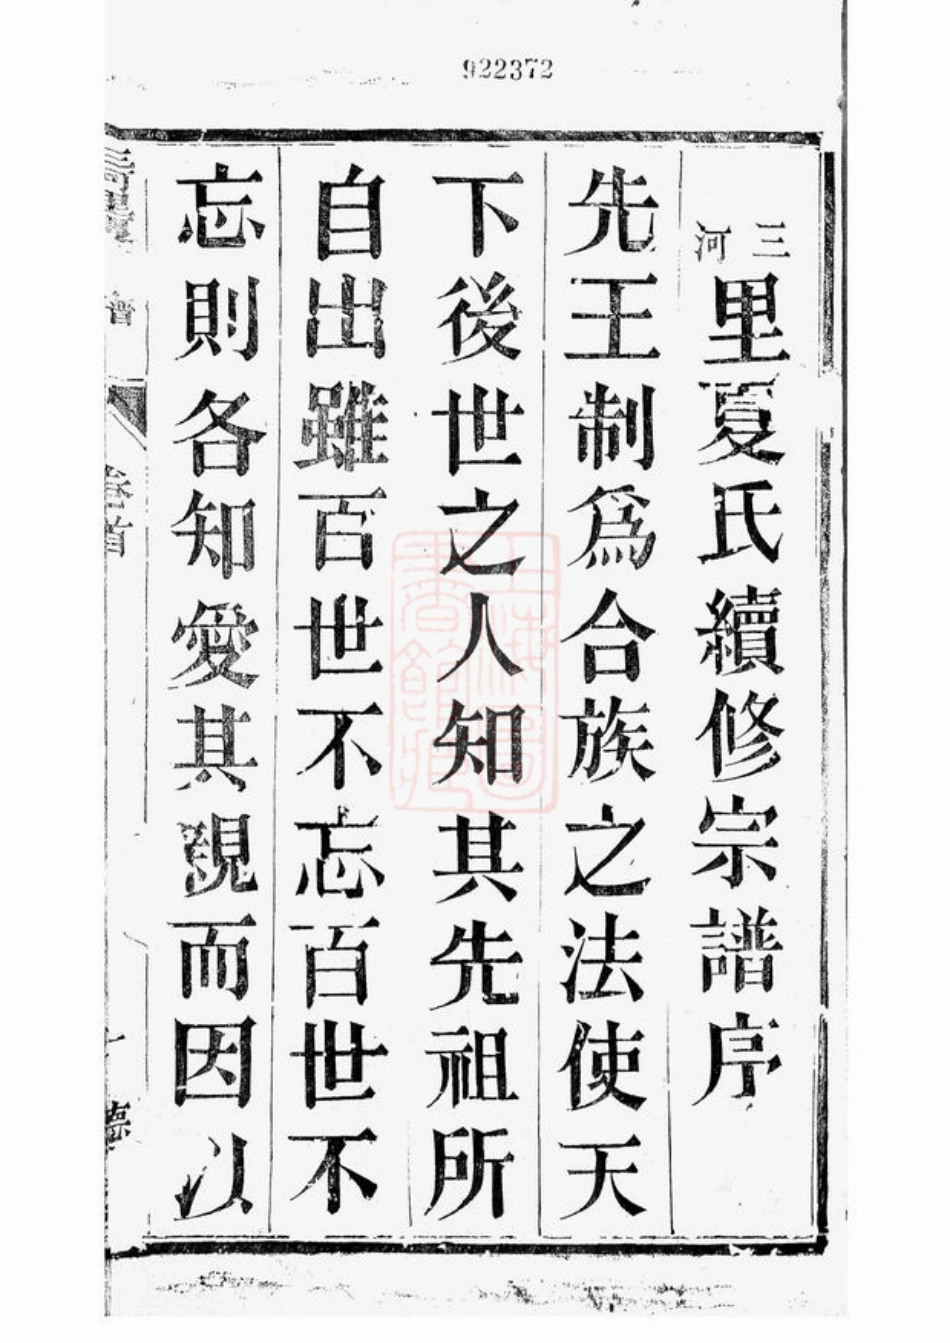 922372
三河里夏氏續修宗譜序
先王制爲合族之法使天
下後世之人知其先祖所
自出雖百世不忘百世不
忘則各知愛其親而因以
譜
卷首
上海圖書館藏